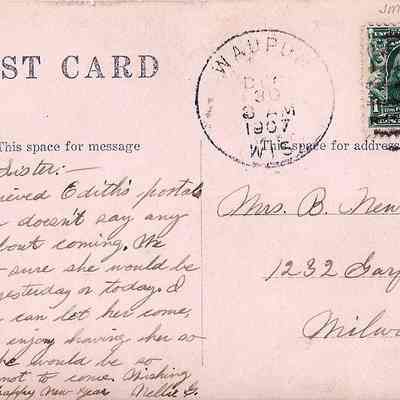 ST CARD
WAUPUN
DEC
30
8 AM
1907
WIS
This space for message
This space for address
Sister:-
ieved Edith's postals
doesn't say any
bout coming. We
sure she would be
yesterday or today. I
can let her come,
enjoy having her so
he would be so
not to come. Wishing
happy New Year Nellie G.
Mrs. B. New
1232 Garf
Milw
1